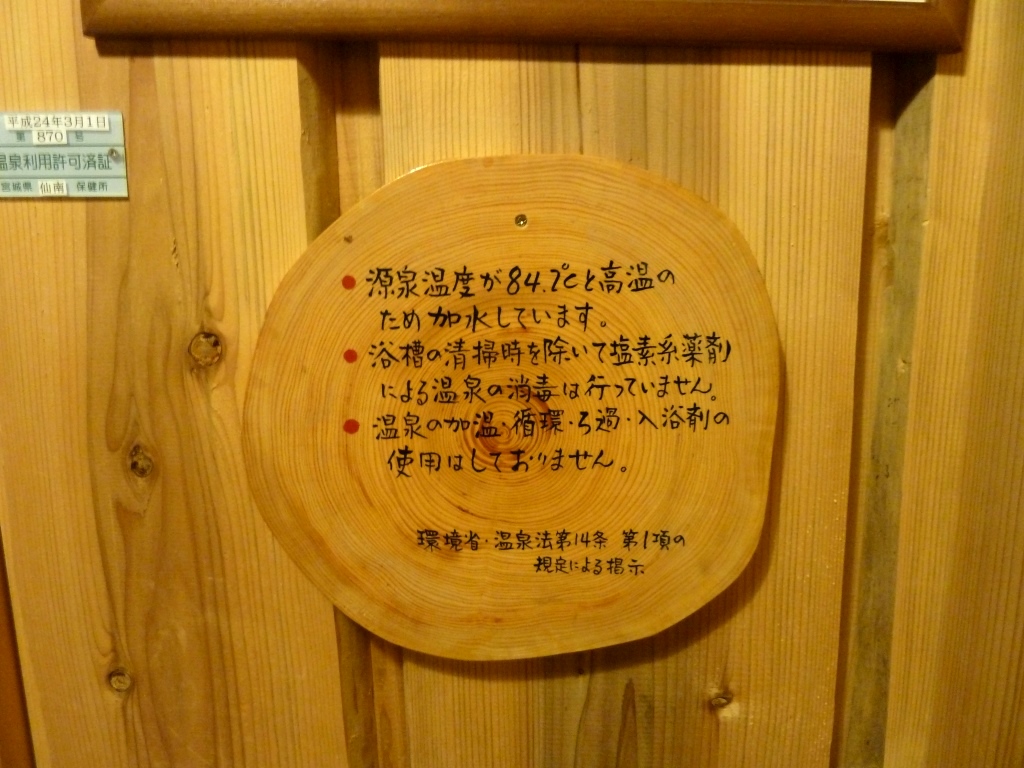 平成24年3月1日
第 870 号
温泉利用許可済証
宮城県 仙南 保健所
●源泉温度が84.7℃と高温の
ため加水しています。
●浴槽の清掃時を除いて塩素系薬剤
による温泉の消毒は行っていません。
●温泉の加温・循環・ろ過・入浴剤の
使用はしておりません。
環境省・温泉法第14条 第1項の
規定による掲示